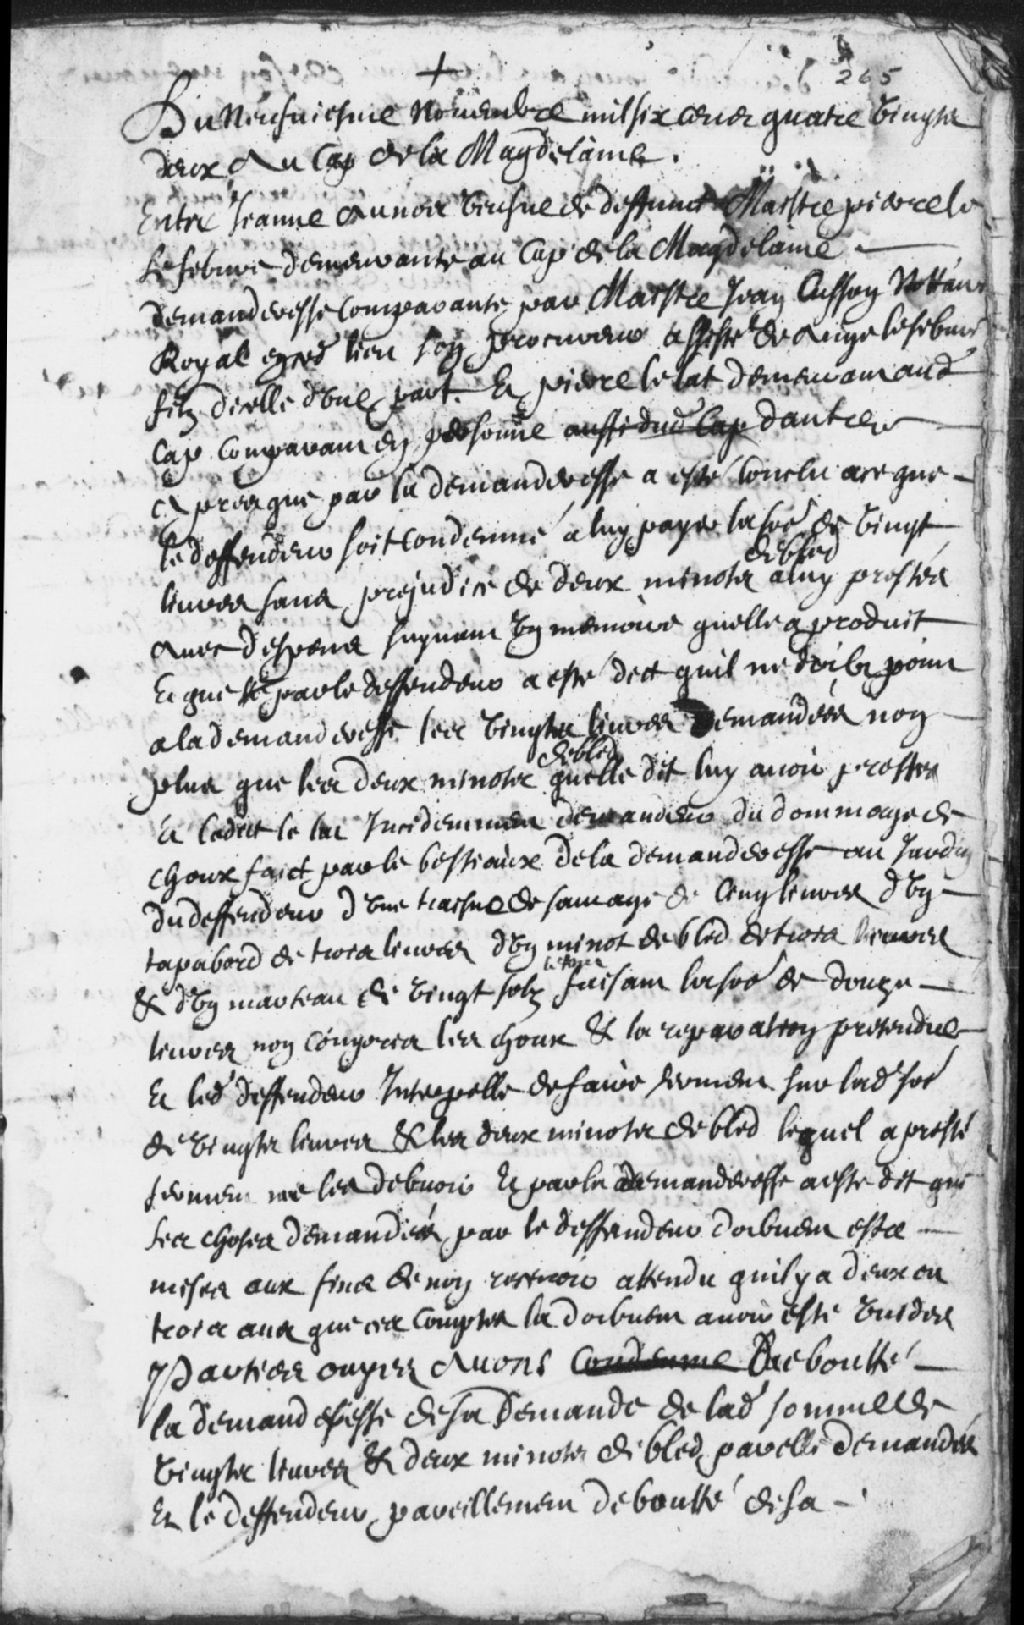 265
Du Neufuiesme Nouembre mil six cens quatre vingts
deux Au Cap de la Magdelaine.
Entre Jeanne Aunois veufue de deffunct Maistre pierre le
Lefebure demeurante au Cap de la Magdelaine
demanderesse comparante par Maistre Jean Cusson Nottaire
Royal esd lieu son procureur assisté de Ange lefebure
filz d'elle d'vne part. Et pierre le lat demeurant aud
Cap comparant en personne aussi dud Cap d'autre
Apres que par la demanderesse a esté conclu a ce que
le deffendeur soit condemné a luy payer la soe de vingt
de bled
liures sans prejudice de deux minots a luy prestés
auec despens suyuant vn memoire quelle a produit
Et que par le deffendeur a esté dect quil ne doibt point
a la demanderesse les vingts liures Demandées non
de bled
plus que les deux minots quelle dit luy auoir prestés
Et ledict le lat Incidemment demandeur du dommage de
choux faict par le bestiaux de la demanderesse au Jardin
du deffendeur d'vne traisne de sauuage de cinq liures d'vn
tapabord de trois liures d'vn minot de bled de trois liures
& d'vn marteau de vingt solz faisant la soe de douze
liures non compris les choux & la reparation pretendue
Et led deffendeur Interpellé de faire serment sur lad soe
de vingts liures & les deux minots de bled lequel a presté
serment ne les debuoir Et par la demanderesse a esté dit que
les choses demandées par le deffendeur doibuent estre
mises aux fins de non receuoir attendu quil y a deux ou
trois ans que ces comptes la doibuent auoir esté vuidés
Parties ouyes Auons Condemne Deboutté
la demanderesse de sa Demande de lad somme de
vingts liures & deux minots de bled par elle demandés
Et le deffendeur pareillement deboutté de sa